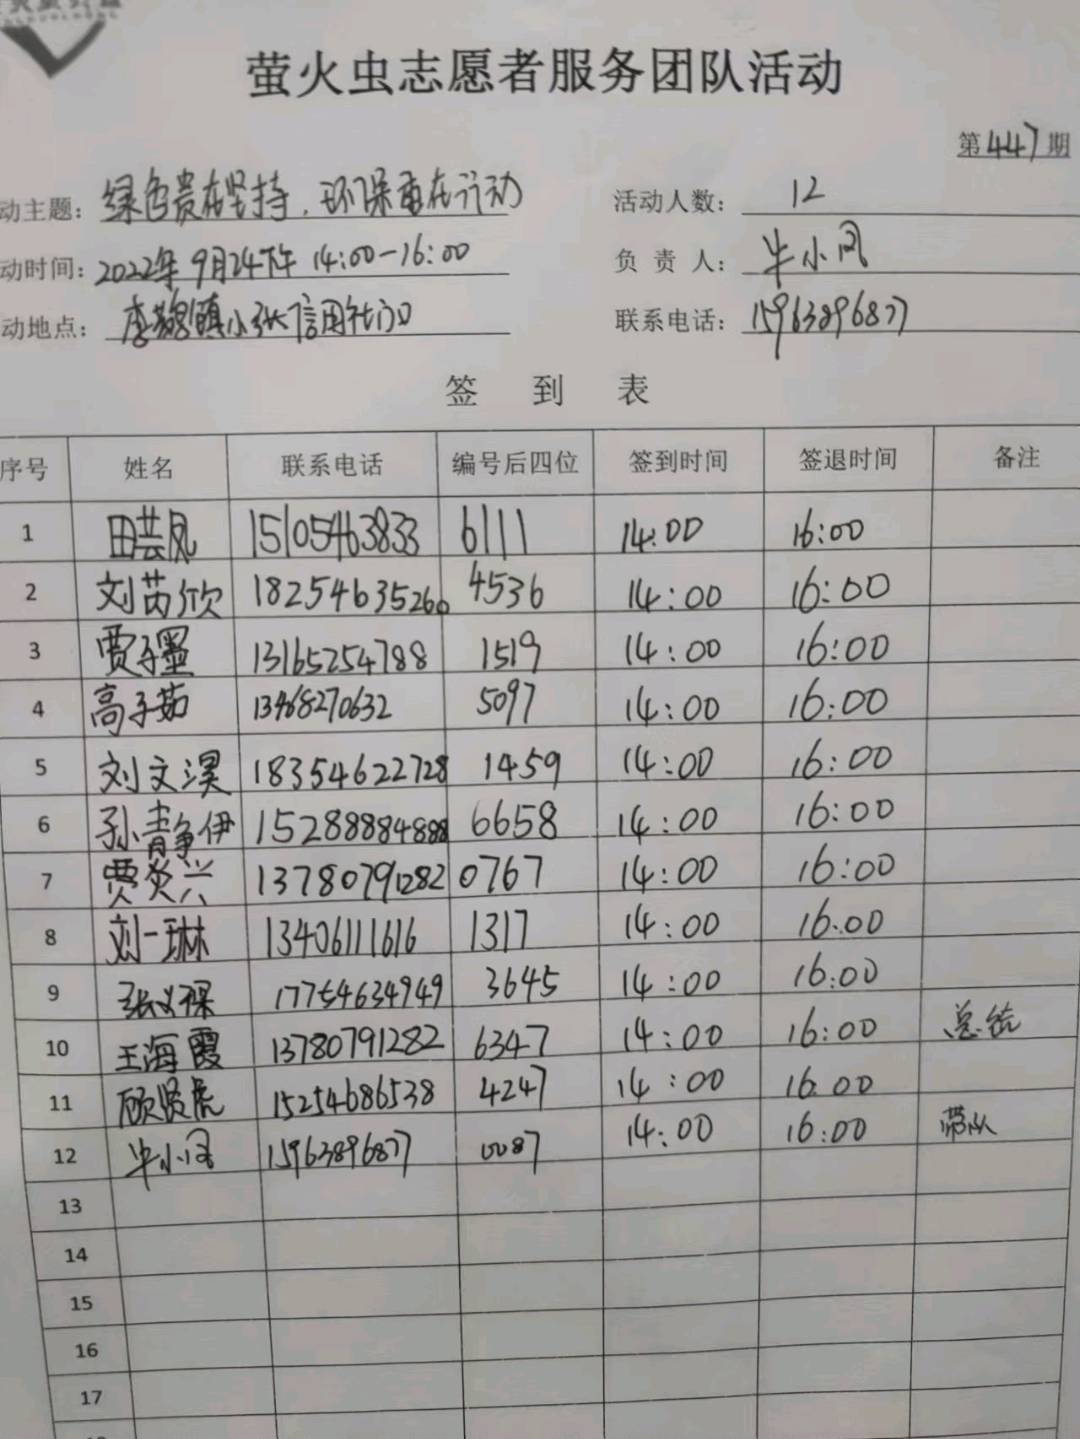 萤火虫志愿者服务团队活动
第447期
动主题：绿色贵在坚持，环保重在行动 活动人数：12
动时间：2022年9月24下午 14:00-16:00 负责人：牛小凤
动地点：李鹊镇小张信用社门口 联系电话：15963896877
签到表
序号 姓名 联系电话 编号后四位 签到时间 签退时间 备注
1 田芸凤 15105463833 6111 14:00 16:00
2 刘芮欣 18254635260 4536 14:00 16:00
3 贾子墨 13165254788 1519 14:00 16:00
4 高子茹 13468270632 5097 14:00 16:00
5 刘文淏 18354622728 1459 14:00 16:00
6 孙静伊 15288884888 6658 14:00 16:00
7 贾炎兴 13780791282 0767 14:00 16:00
8 刘一琳 13406111616 1317 14:00 16:00
9 张义祿 17754634949 3645 14:00 16:00
10 王海霞 13780791282 6347 14:00 16:00 总结
11 顾贤虎 15254686538 4247 14:00 16:00
12 牛小凤 15963896877 0087 14:00 16:00 带队
13
14
15
16
17